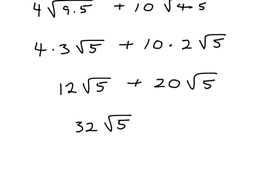 4√9·5 + 10√4·5
4·3√5 + 10·2√5
12√5 + 20√5
32√5